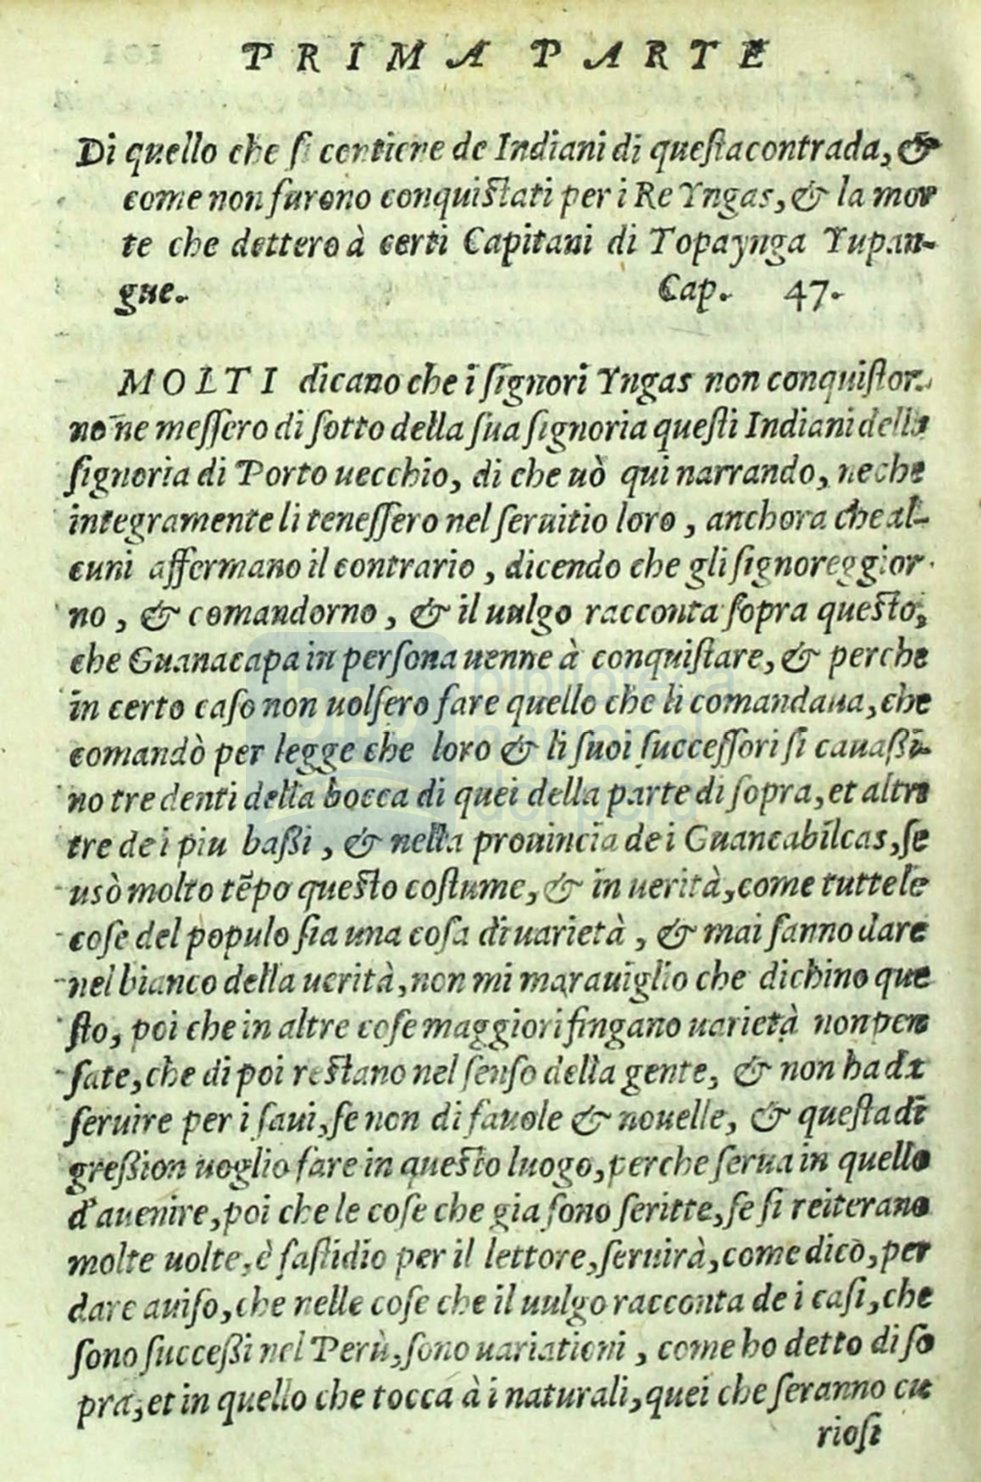 PRIMA PARTE
Di quello che si contiene de Indiani di questa contrada, &
come non furono conquistati per i Re Yngas, & la mor
te che dettero à certi Capitani di Topaynga Yupan-
gue. Cap. 47.
MOLTI dicano che i signori Yngas non conquistor-
no ne messero di sotto della sua signoria questi Indiani della
signoria di Porto uecchio, di che uò qui narrando, ne che
integramente li tenessero nel seruitio loro, anchora che al-
cuni affermano il contrario, dicendo che gli signoreggior-
no, & comandorno, & il uulgo racconta sopra questo,
che Guanacapa in persona uenne à conquistare, & perche
in certo caso non uolsero fare quello che li comandaua, che
comandò per legge che loro & li suoi successori si cauaßi-
no tre denti della bocca di quei della parte di sopra, et altri
tre de i piu baßi, & nella prouincia de i Guancabilcas, se
usò molto tẽpo questo costume, & in uerità, come tutte le
cose del populo sia una cosa di uarietà, & mai sanno dare
nel bianco della uerità, non mi marauiglio che dichino que
sto, poi che in altre cose maggiori fingano uarietà non pen
sate, che di poi restano nel senso della gente, & non ha da
seruire per i saui, se non di fauole & nouelle, & questa di
greßion uoglio fare in questo luogo, perche serua in quello
d'auenire, poi che le cose che gia sono scritte, se si reiterano
molte uolte, è fastidio per il lettore, seruirà, come dico, per
dare auiso, che nelle cose che il uulgo racconta de i casi, che
sono succeßi nel Perù, sono uariationi, come ho detto di so
pra, et in quello che tocca à i naturali, quei che seranno cu
riosi